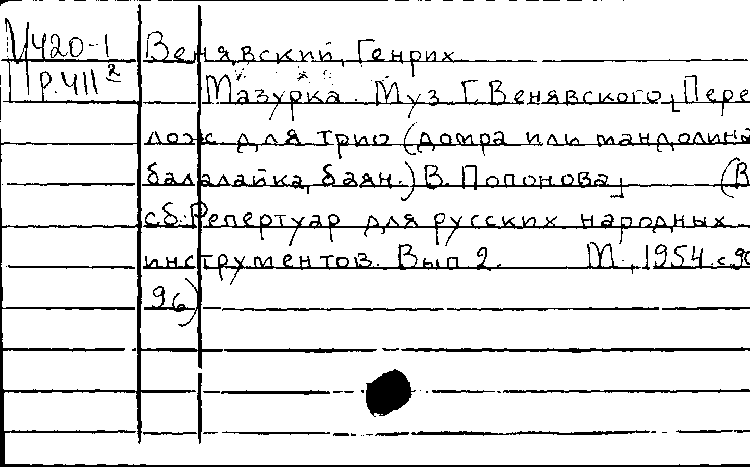 М420-1 Венявский, Генрих
Р.411² Мазурка. Муз. Г. Венявского, [Пере
лож. для трио (домра или мандолина
балалайка, баян.) В. Попонова] (В
сб: Репертуар для русских народных
инструментов. Вып 2. М., 1954. с.90
96)